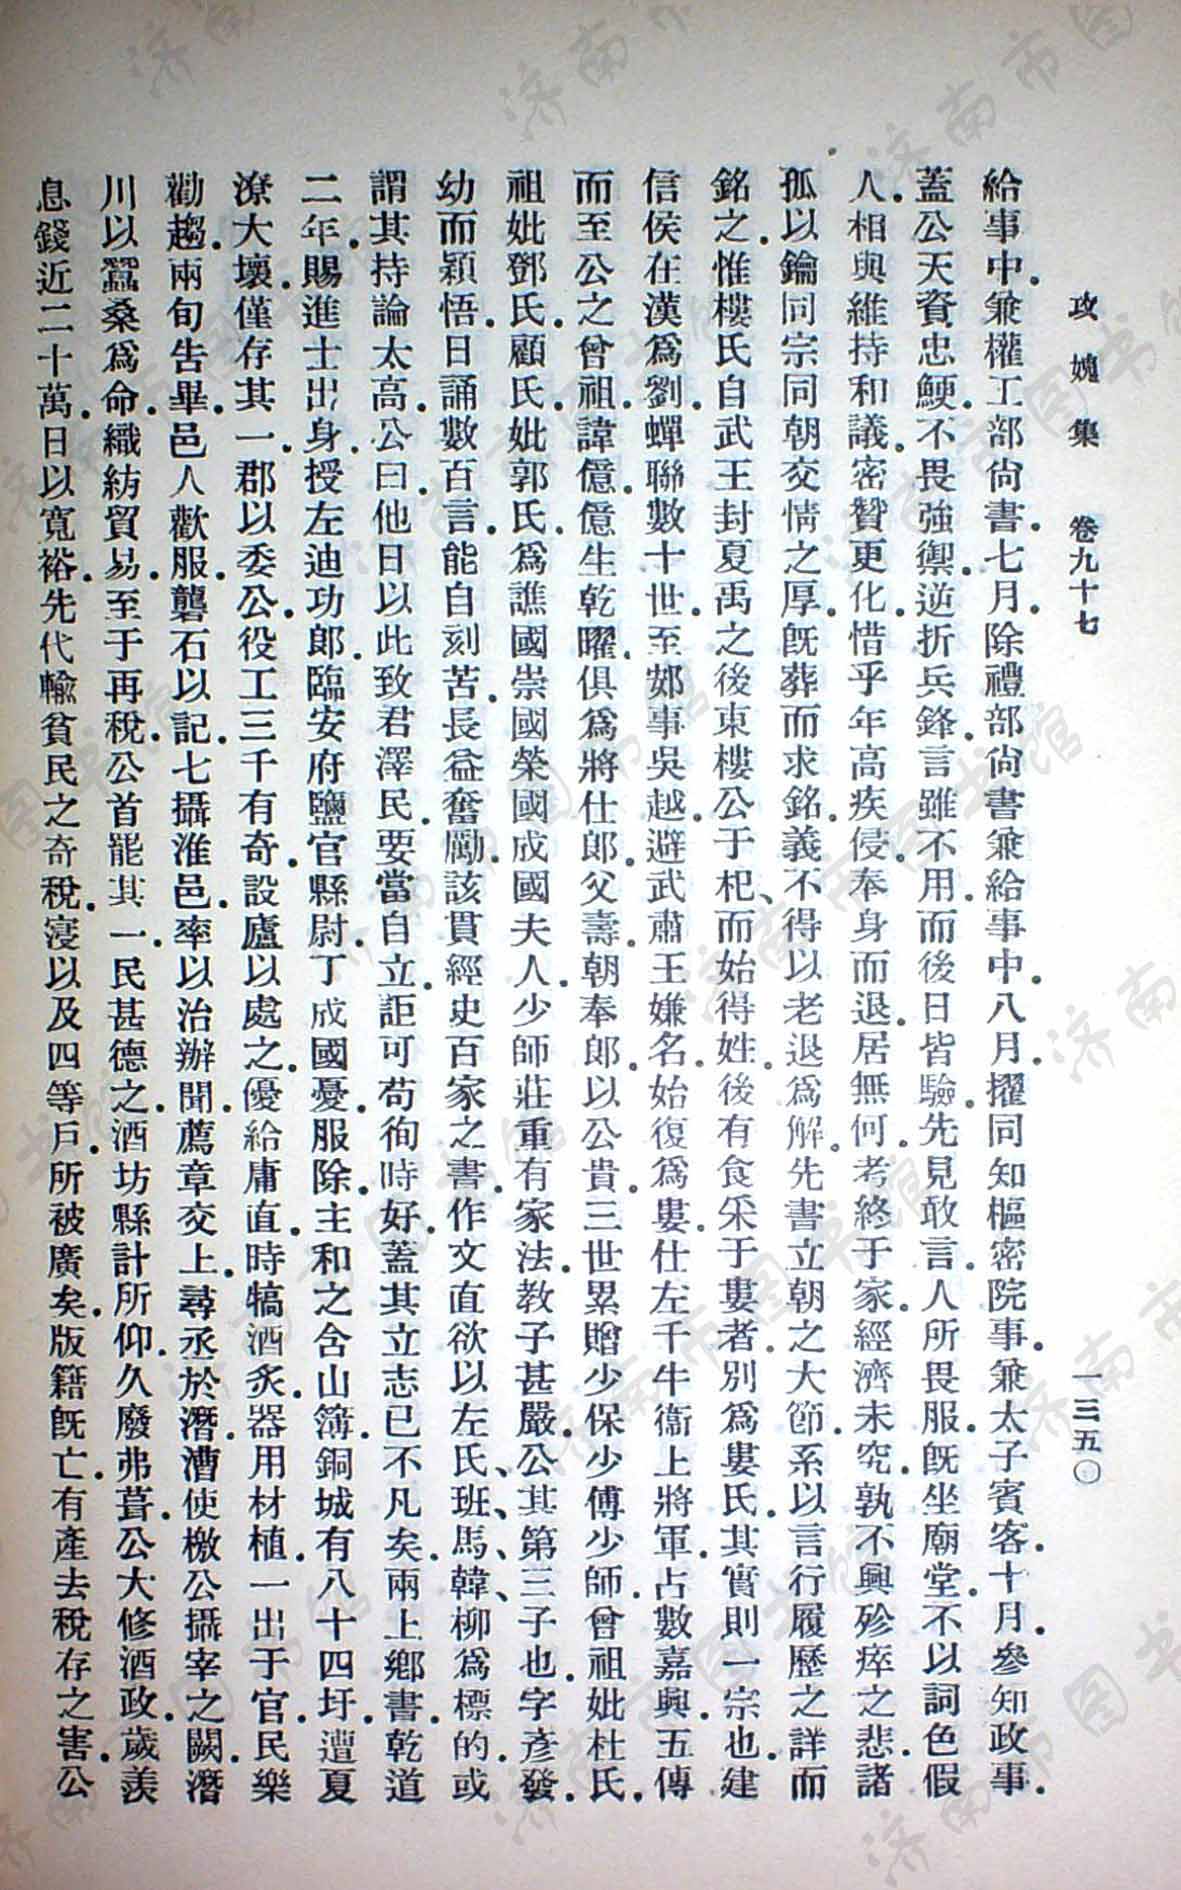 攻媿集　卷九十七　一三五〇
給事中.兼權工部尙書.七月.除禮部尙書兼給事中.八月.擢同知樞密院事.兼太子賓客.十月.參知政事.
蓋公天資忠鯁.不畏強禦.逆折兵鋒.言雖不用.而後日皆驗.先見敢言.人所畏服.旣坐廟堂.不以詞色假
人.相與維持和議.密贊更化.惜乎年高疾侵.奉身而退.居無何.考終于家.經濟未究.孰不興殄瘁之悲.諸
孤以鑰同宗同朝交情之厚.旣葬而求銘.義不得以老退爲解.先書立朝之大節.系以言行履歷之詳而
銘之.惟樓氏自武王封夏禹之後東樓公于杞、而始得姓.後有食采于婁者.別爲婁氏.其實則一宗也.建
信侯在漢爲劉.蟬聯數十世.至郊事吳越.避武肅王嫌名.始復爲婁.仕左千牛衞上將軍.占數嘉興.五傳
而至公之曾祖.諱億.億生乾曜.俱爲將仕郎.父壽.朝奉郎.以公貴.三世累贈少保少傅少師.曾祖妣杜氏.
祖妣鄧氏.顧氏.妣郭氏.爲譙國崇國榮國成國夫人.少師莊重有家法.教子甚嚴.公其第三子也.字彥發.
幼而穎悟.日誦數百言.能自刻苦.長益奮勵.該貫經史百家之書.作文直欲以左氏、班、馬、韓、柳爲標的.或
謂其持論太高.公曰.他日以此致君澤民.要當自立.詎可苟徇時好.蓋其立志已不凡矣.兩上鄉書.乾道
二年.賜進士出身.授左迪功郎.臨安府鹽官縣尉.丁成國憂.服除.主和之含山簿.銅城有八十四圩.遭夏
潦大壞.僅存其一.郡以委公.役工三千有奇.設廬以處之.優給庸直.時犒酒炙.器用材植.一出于官.民樂
勸趨.兩旬告畢.邑人歡服.礱石以記.七攝淮邑.率以治辦聞.薦章交上.尋丞於潛.漕使檄公攝宰之闕.潛
川以蠶桑爲命.織紡貿易.至于再稅.公首罷其一.民甚德之.酒坊縣計所仰.久廢弗葺.公大修酒政.歲羨
息錢近二十萬.日以寬裕.先代輸貧民之奇稅.寖以及四等戶.所被廣矣.版籍旣亡.有產去稅存之害.公